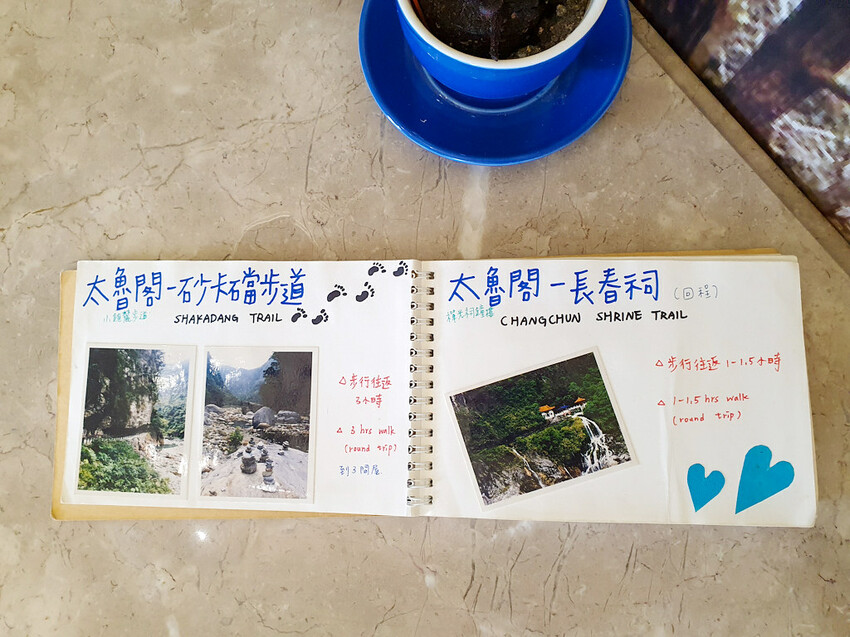 太魯閣-砂卡礑步道
SHAKADANG TRAIL
△步行往返
3小時
△ 3 hrs walk
(round trip)
到3間屋
太魯閣-長春祠 (回程)
禪光祠鐘樓
CHANGCHUN SHRINE TRAIL
△步行往返 1-1.5小時
△ 1-1.5 hrs walk
(round trip)